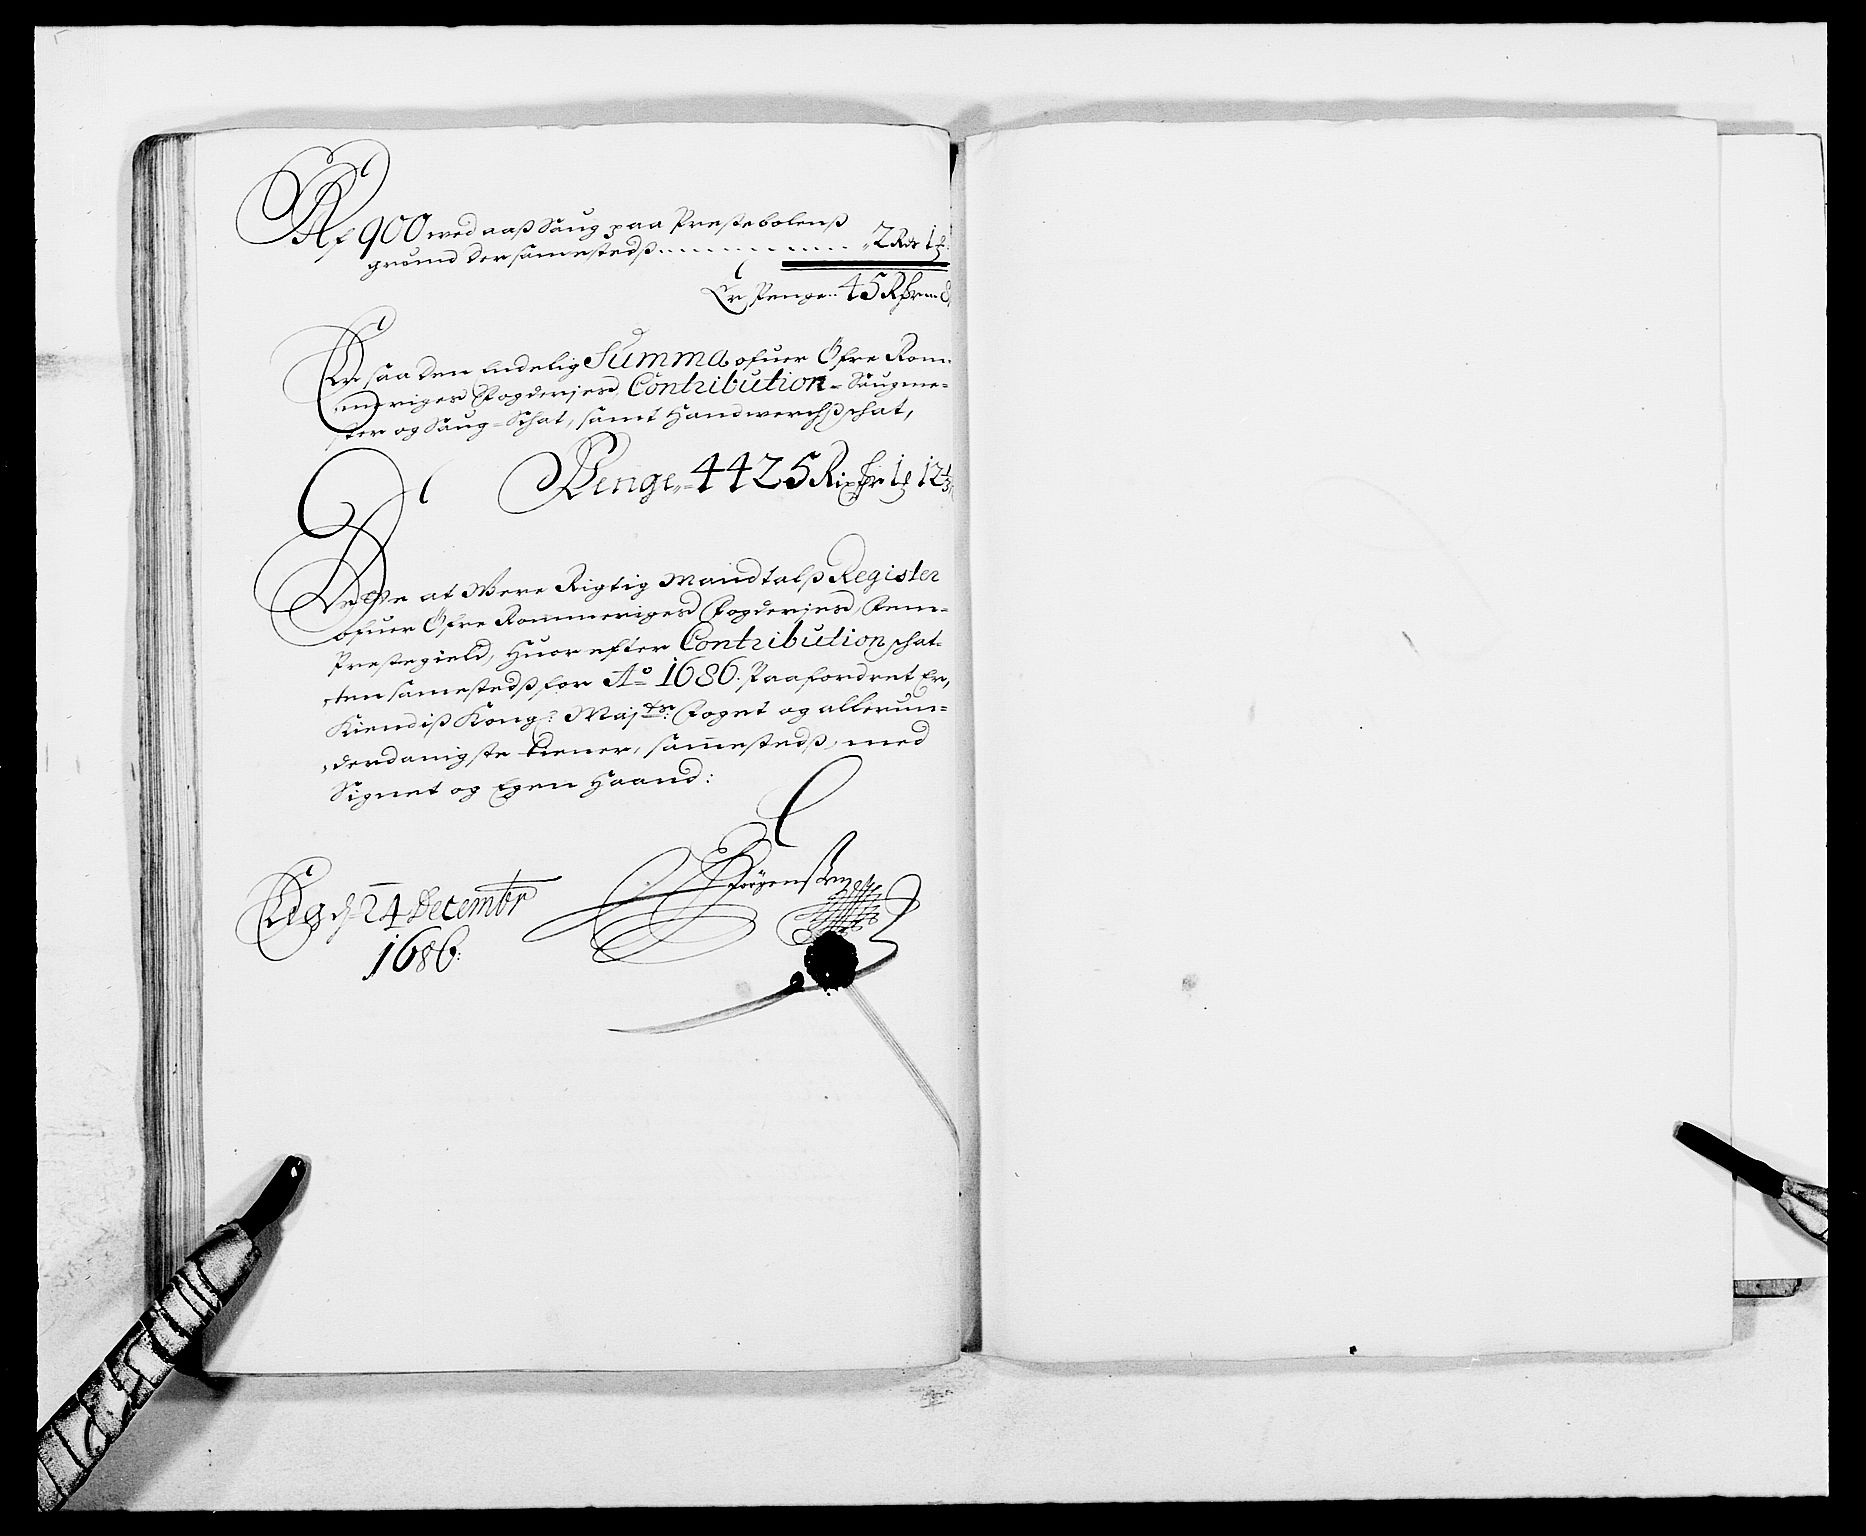 Af 900 wed aaß Saug paa Prestebolenß
grund der sammesteds ......... 2 Rdr 1
Er Penge .. 45 Rdr
Er saa den Endelig Summa ofuer Öfre Rom-
meriges Fogderies Contribution - Saugme-
ster og Saug-Schat, samt Handwerchßschat,
Penge 4425 Rixdr 1 12
Dette at Were Rigtig Mandtalß Register
ofuer Öfre Rommeriges Fogderies Fem
Prestegield, Huor efter Contribution schat-
ten sammestedß for Ao 1686. Paafordret Er,
Kiendiß Kongl: Majts: Foget og allerun-
derdanigste tiener, sammestedß, med
Signet og Egen Haand:
d 24 Decembr
1686: